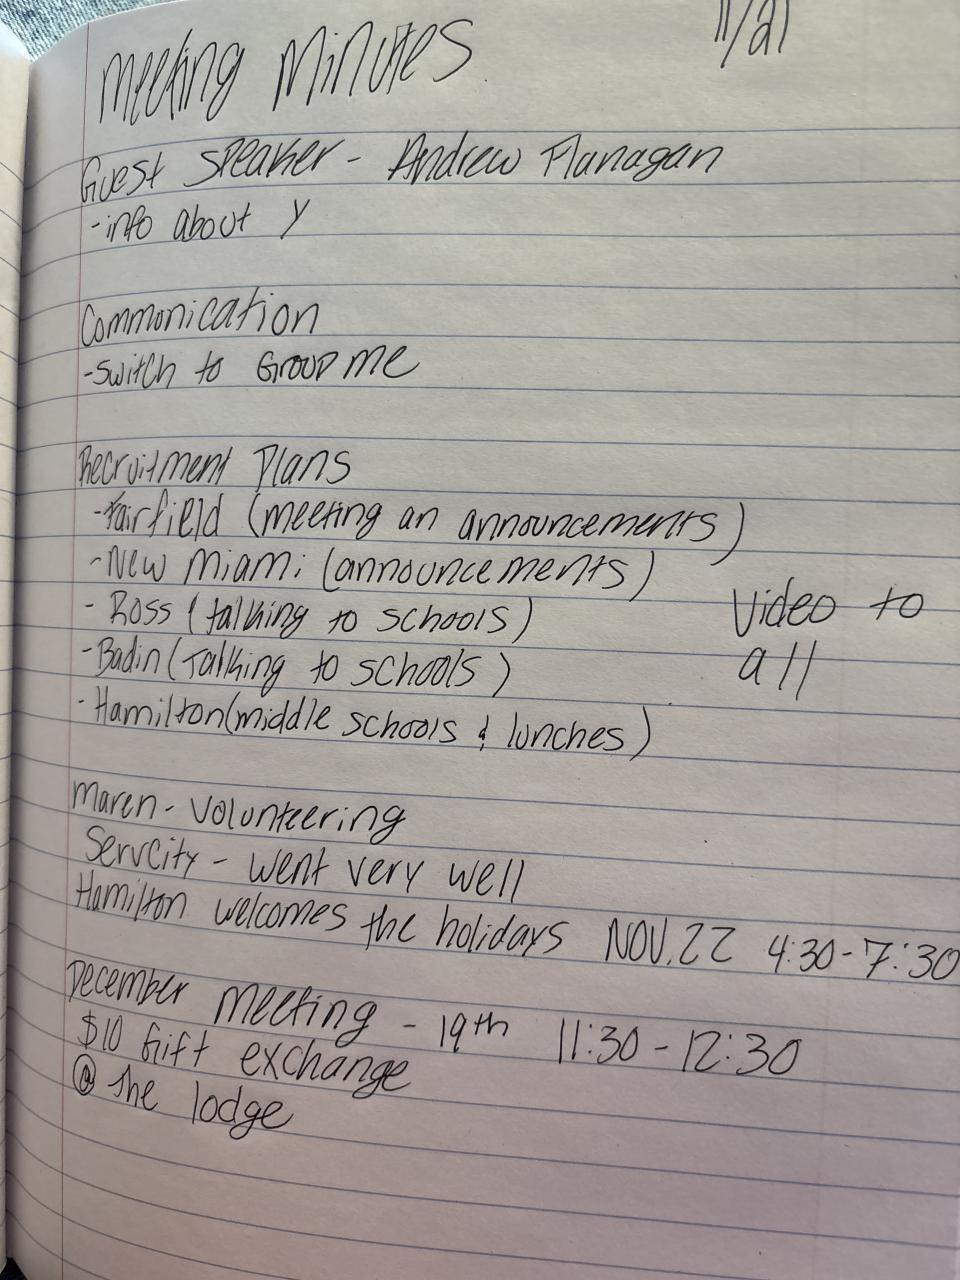 Meeting Minutes 11/21
Guest Speaker - Andrew Flanagan
-info about Y
Communication
-Switch to Group me
Recruitment Plans
-Fairfield (meeting an announcements)
-New Miami (announcements)
- Ross (talking to schools)
-Badin (Talking to schools)
- Hamilton (middle schools & lunches)
Video to
all
Maren - Volunteering
Servcity - went very well
Hamilton welcomes the holidays NOV. 22 4:30-7:30
December Meeting - 19th 11:30-12:30
$10 Gift exchange
@ The lodge